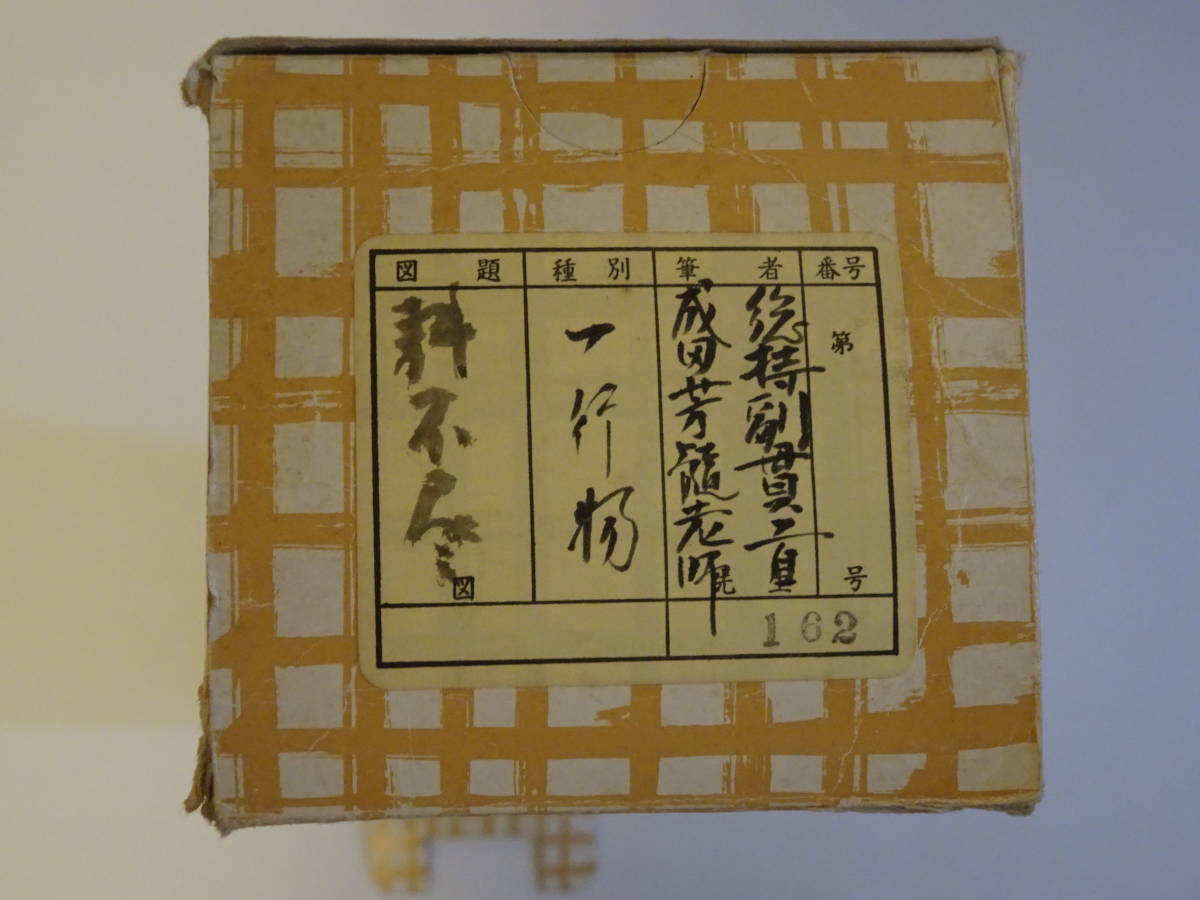 図題
種別
筆者
番号
耕不尽
図
一行物
総持副貫首
成田芳髄老師
第
号
162